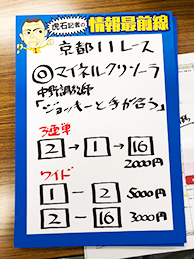 虎石記者の
情報最前線
京都11レース
◎マイネルクリソーラ
中野調教師
「ジョッキーと手が合う」
3連単
2→1→16
2000円
ワイド
1－2 5000円
2－16 3000円